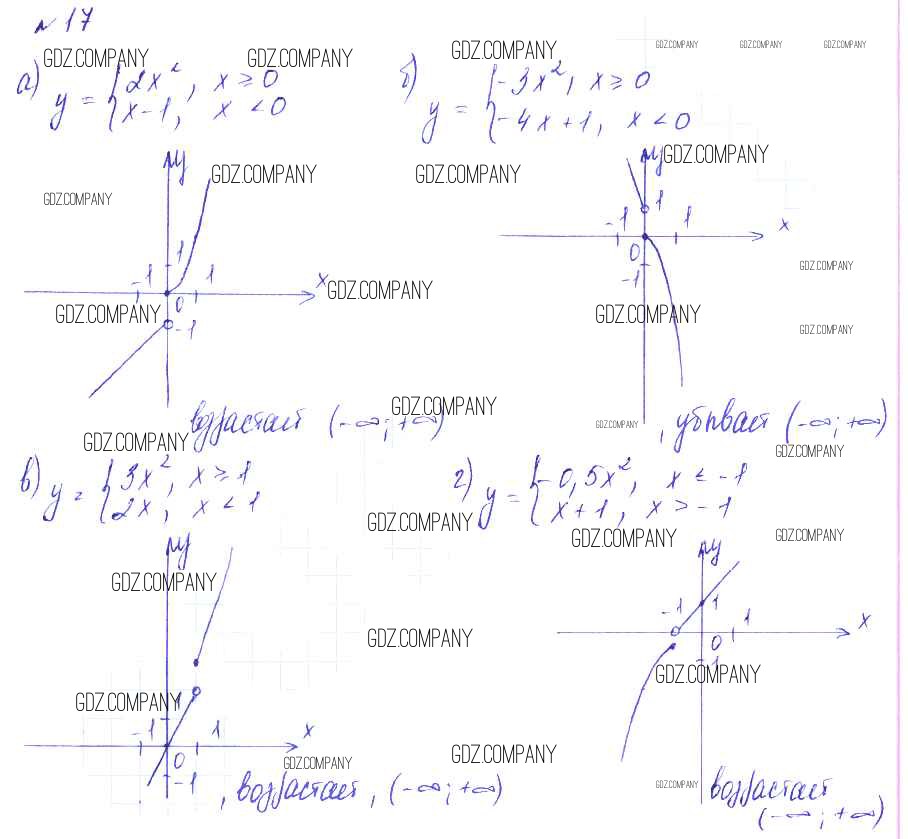 № 17
GDZ.COMPANY GDZ.COMPANY GDZ.COMPANY GDZ.COMPANY GDZ.COMPANY GDZ.COMPANY
а) y = { 2x², x ≥ 0
x - 1, x < 0
б) y = { -3x², x ≥ 0
-4x + 1, x < 0
y GDZ.COMPANY GDZ.COMPANY y GDZ.COMPANY
GDZ.COMPANY
1
-1 1 x
1
-1 1 x
0
-1
GDZ.COMPANY
GDZ.COMPANY
0
GDZ.COMPANY GDZ.COMPANY GDZ.COMPANY
-1
возрастает (-∞; +∞)
GDZ.COMPANY
GDZ.COMPANY , убывает (-∞; +∞)
GDZ.COMPANY GDZ.COMPANY
в) y = { 3x², x ≥ 1
2x, x < 1
г) y = { -0,5x², x ≤ -1
x + 1, x > -1
GDZ.COMPANY GDZ.COMPANY GDZ.COMPANY
y
y
GDZ.COMPANY
-1 1 1 x
GDZ.COMPANY
0
1
GDZ.COMPANY
GDZ.COMPANY 1
-1 1 x
0
-1
GDZ.COMPANY GDZ.COMPANY
, возрастает, (-∞; +∞)
GDZ.COMPANY возрастает
(-∞; +∞)